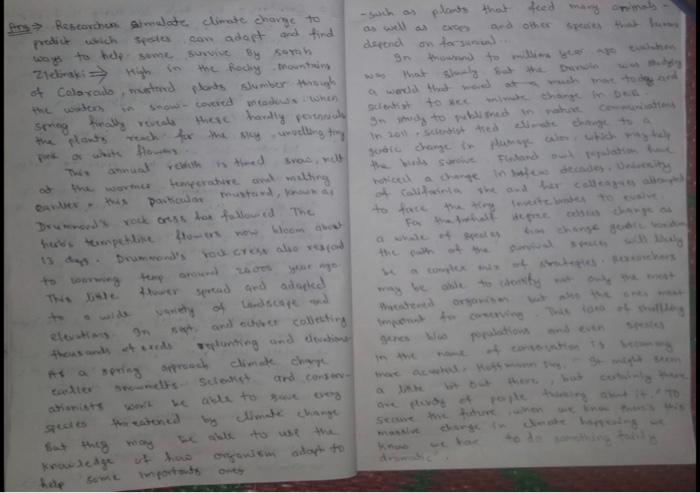 Ans → Researchers simulate climate change to
predict which species can adapt and find
ways to help some survive By sarah
Zielinski ⇒ High in the Rocky Mountains
of Colorado, mustard plants slumber through
the winters in snow-covered meadows. when
spring finally reveals these hardly perennials
the plants reach for the sky, unveiling tiny
pink or white flowers.
This annual rebirth is timed snow, melt
at the warmer temperature and melting
earlier, this particular mustard, known as
Drummond's rock cress has followed The
herb's flowers now bloom about
13 days. Drummond's rock cress also respond
to warming temp around 20,000 year ago
This little flower spread and adapted
to a wide variety of landscape and
elevations. In sept. and october collecting
thousands of seeds replanting and elevations
As a spring approach climate change
earlier snowmelts scientist and conserv-
ationists won't be able to save every
species threatened by climate change
But they may be able to use the
knowledge of how organism adapt to
help some importants ones
-such as plants that feed many animals -
as well as crops and other species that humans
depend on for survival...
In thousand to millions year ago evolution
was that slowly But the Darwin was studying
a world that moved at a much more today and
scientist to see minute change in DNA.
In study to published in nature communications
In 2011, scientist tied climate change to a
genetic change in plumage color, which may help
the birds survive. Finland owl population have
noticed a change In decades. University
of California she and her colleagues attempted
to force the tiny invertebrates to evolve.
For the half degree celsius change as
a whole of species from change genetic
the path of the survival species will likely
be a complex mix of strategies. Researchers
may be able to identify not only the most
threatened organism but also the ones most
important for conserving. This idea of shuffling
genes b/w populations and even species
in the name of conservation is becoming
more Hoffmann says. "It might seem
a little bit out there, but certainly there
are plenty of people thinking about it." "To
secure the future, when we know there's this
massive change in climate happening we
know we have to do something fairly
dramatic".